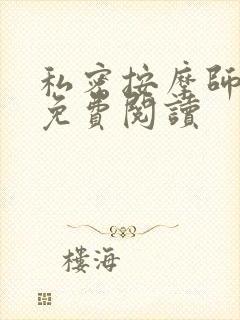 私密按摩師
免費閱讀
樓海